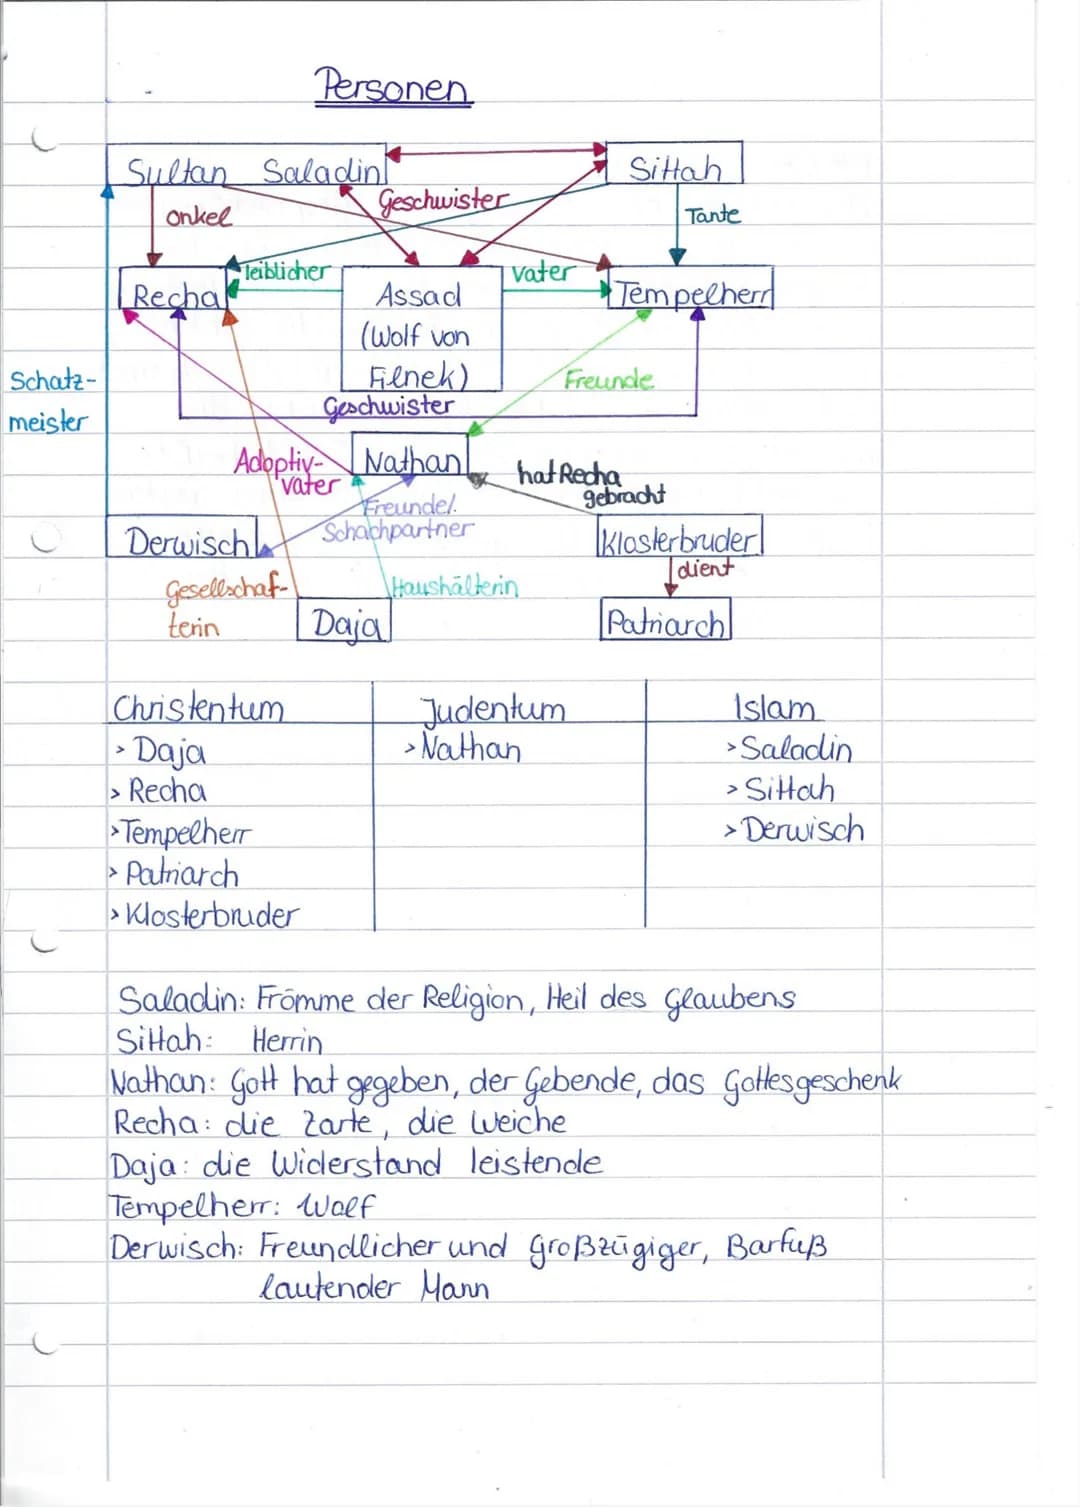 Personen
Sultan Saladin
Sittah
Geschwister
onkel
Tante
leiblicher
vater
Recha
Assad
(Wolf von
Filnek)
Tempelherr
Schatz-
meister
Freunde
Geschwister
Adoptiv-
vater
Nathan
hat Recha
gebracht
Freunde/.
Schachpartner
Derwisch
Klosterbruder
dient
Gesellschaf-
terin
Haushälterin
Daja
Patriarch
Christentum Judentum Islam
> Daja > Nathan > Saladin
> Recha > Sittah
> Tempelherr > Derwisch
> Patriarch
> Klosterbruder
Saladin: Frömme der Religion, Heil des Glaubens
Sittah: Herrin
Nathan: Gott hat gegeben, der Gebende, das Gottesgeschenk
Recha: die Zarte, die Weiche
Daja: die Widerstand leistende
Tempelherr: Wolf
Derwisch: Freundlicher und Großzügiger, Barfuß
lautender Mann